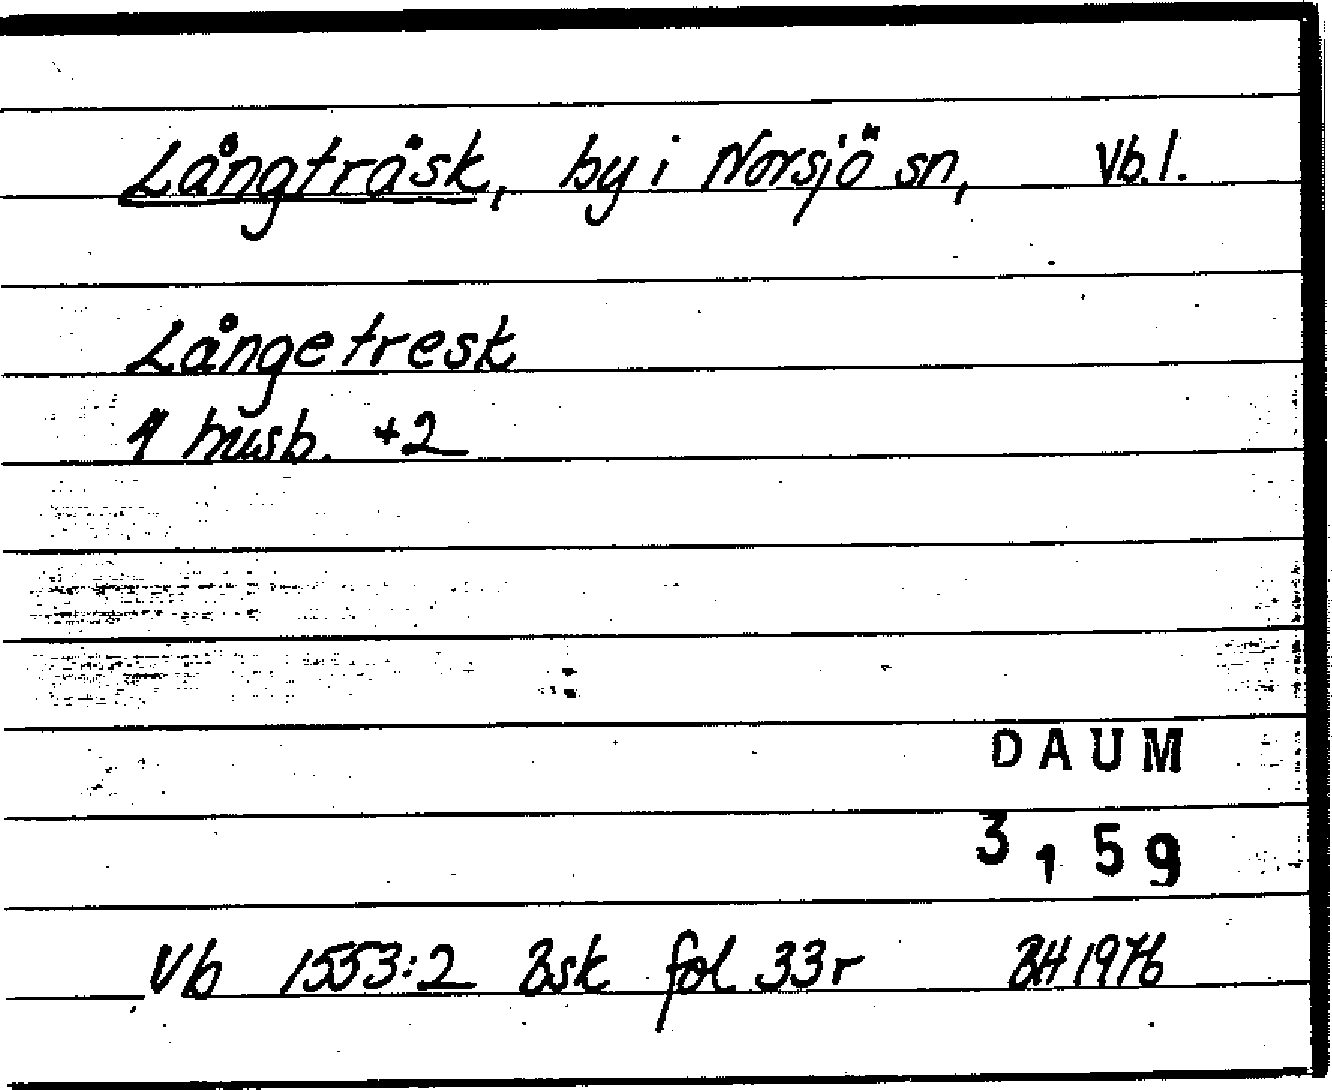 Långträsk, by i Norsjö sn, Vb.l.
Långetresk
1 husb. +2
DAUM
3,59
Vb 1553:2 Bsk fol 33r BH 1976